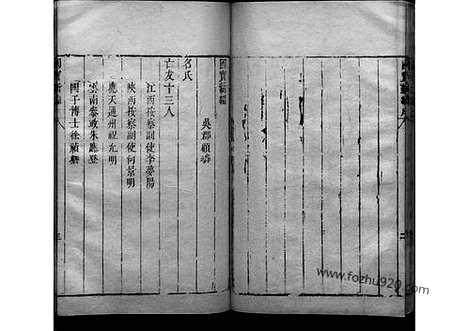 國寶新編
吳郡顧璘
名氏
亡友十三人
江西按察副使李夢陽
陝西按察副使何景明
應天通州祝允明
雲南參政朱應登
國子博士徐禎卿
www.fozhu920.com